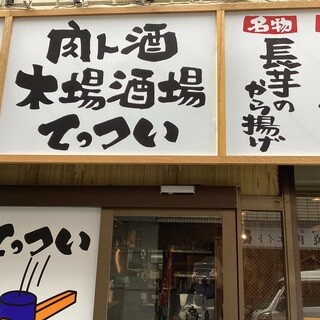 肉ト酒
木場酒場
てっつい
名物
長芋の
から揚げ
てっつい